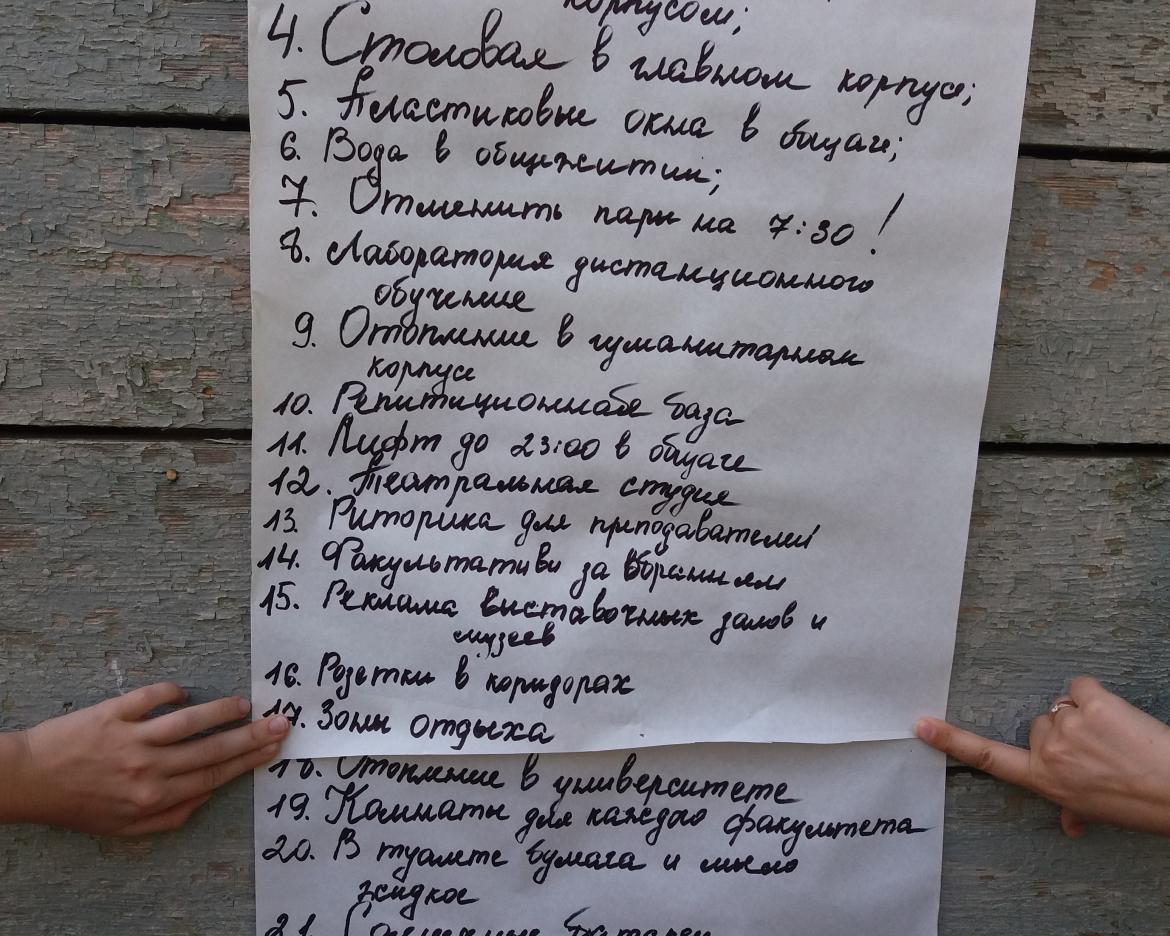 корпусом;
4. Столовая в главном корпусе;
5. Пластиковые окна в общаге;
6. Вода в общежитии;
7. Отменить пары на 7:30!
8. Лаборатория дистанционного
обучение
9. Отопление в гуманитарном
корпусе
10. Репитиционная база
11. Лифт до 23:00 в общаге
12. Театральная студия
13. Риторика для преподавателей
14. Факультативы за вбраниям
15. Реклама выставочных залов и
музеев
16. Розетки в коридорах
17. Зоны отдыха
18. Отопление в университете
19. Комнаты для каждого факультета
20. В туалете бумага и мыло
жидкое
21. батареи